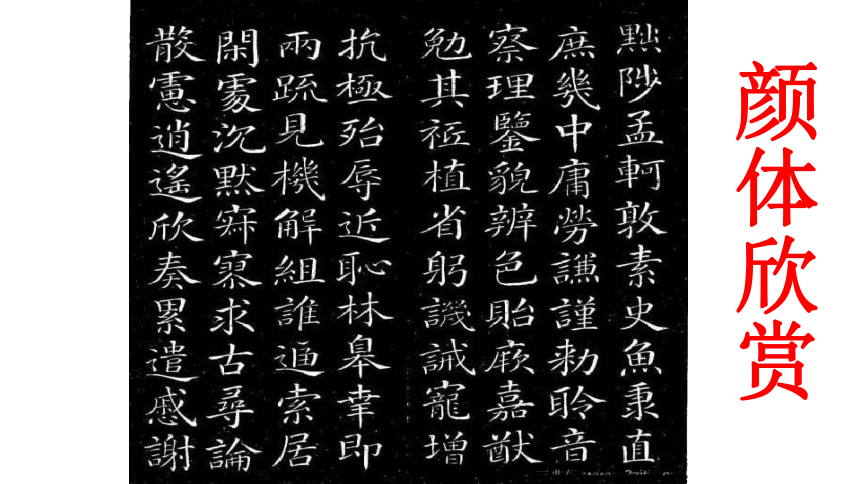 颜体欣赏
黜陟孟軻敦素史魚秉直
庶幾中庸勞謙謹勑聆音
察理鑒貌辨色貽厥嘉猷
勉其祗植省躬譏誡寵增
抗極殆辱近恥林皋幸即
兩疏見機解組誰逼索居
閑處沉默寂寥求古尋論
散慮逍遙欣奏累遣慼謝